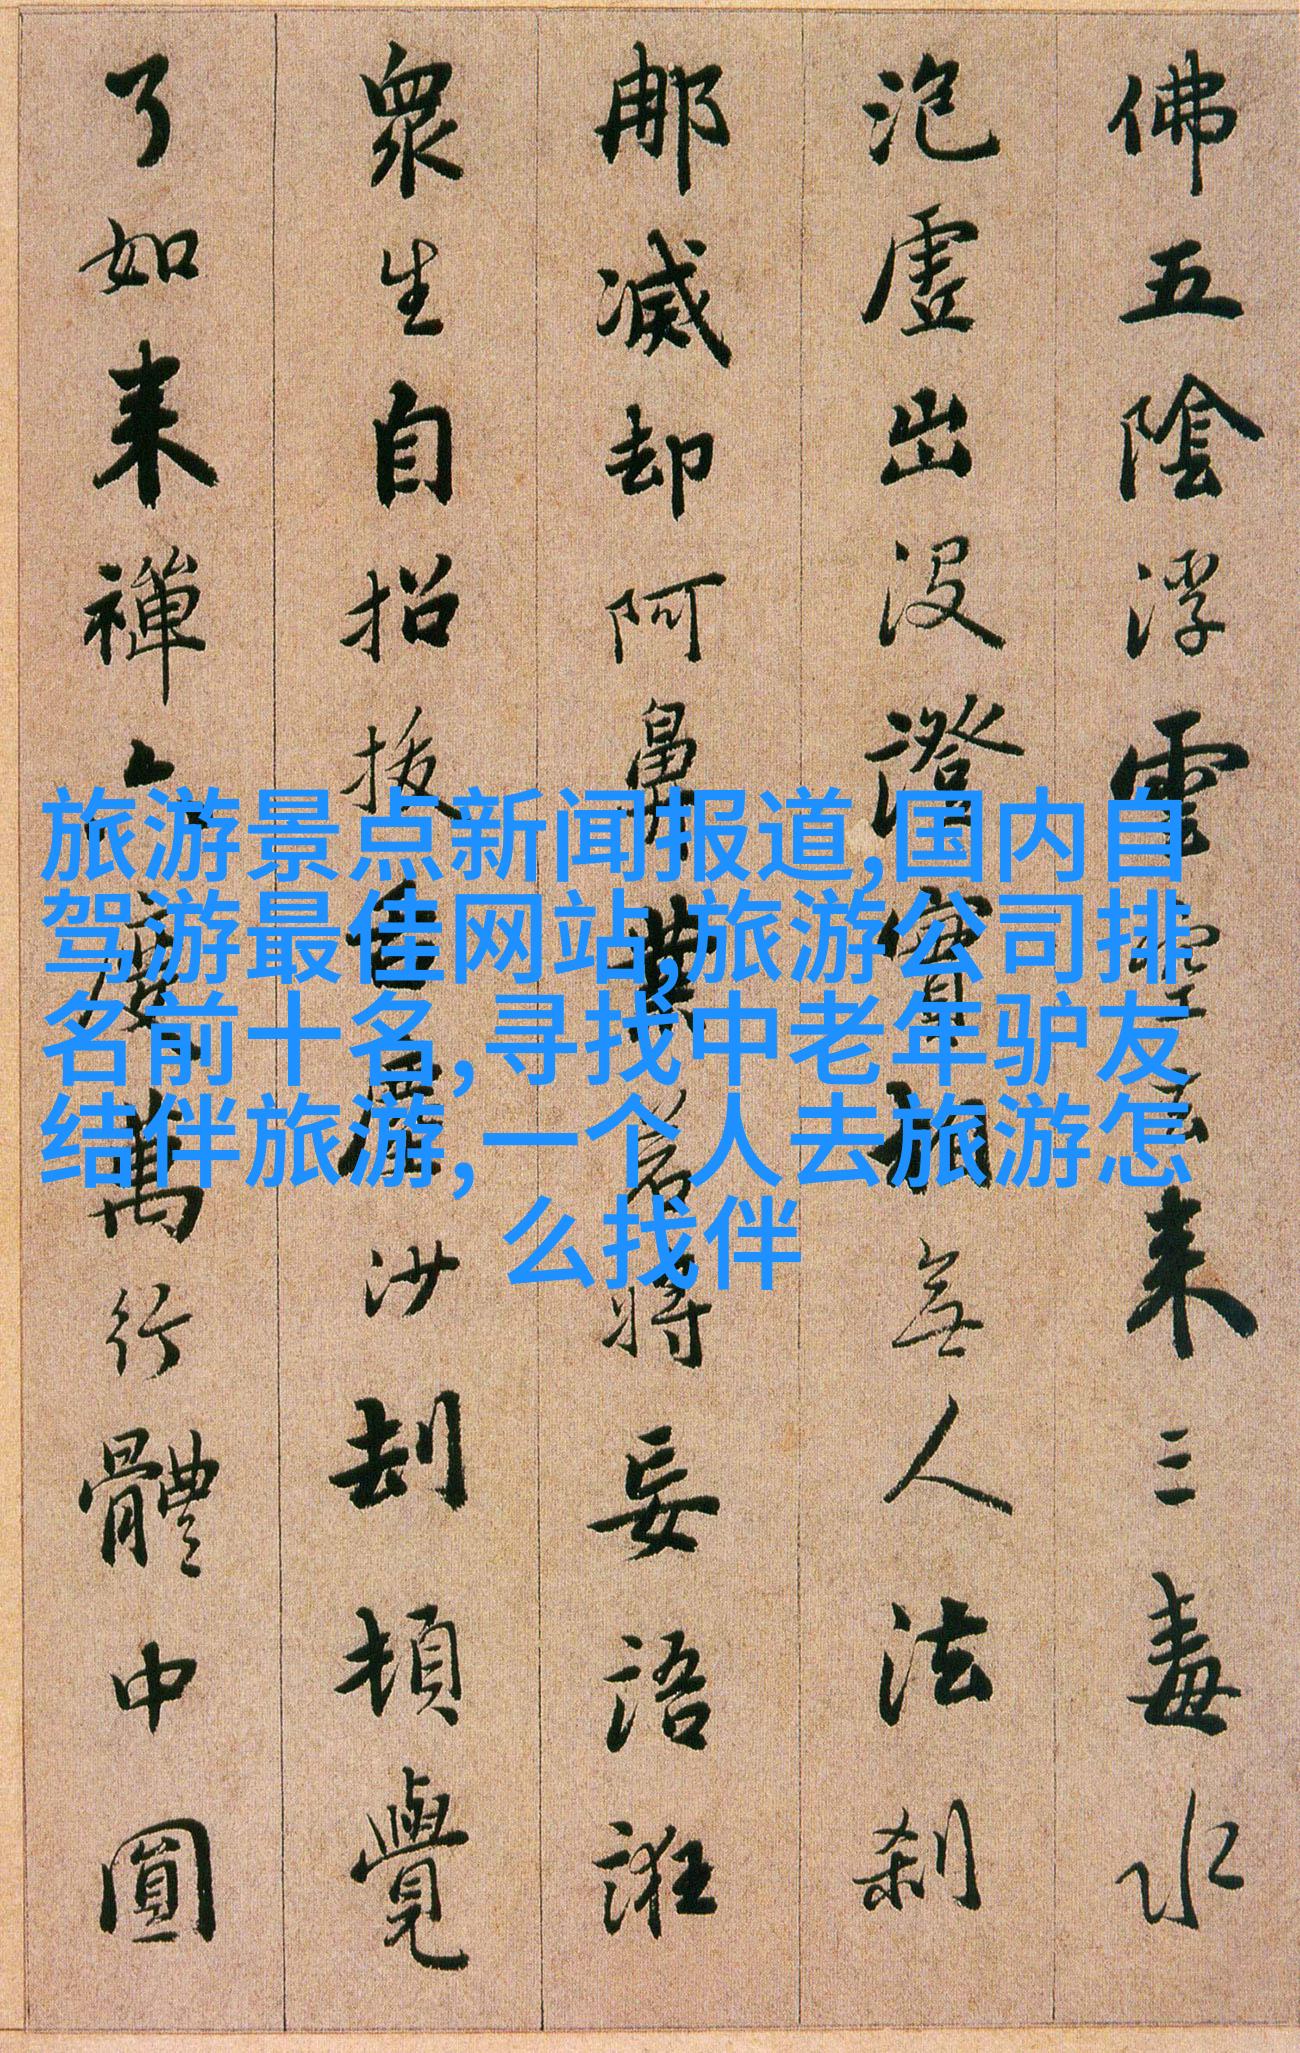 佛五陰浮雲空去来三毒水
泡虛出没證實相無人法刹
那滅却阿鼻業若将妄語誑
衆生自招拔舌塵沙劫頓覺
了如来禪六度萬行體中圓
旅游景点新闻报道,国内自
驾游最佳网站,旅游公司排
名前十名,寻找中老年驴友
结伴旅游,一个人去旅游怎
么找伴